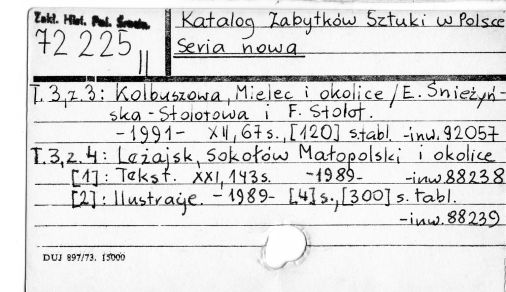 Zakł. Hist. Pol. Średn.
72 225 II
Katalog Zabytków Sztuki w Polsce
Seria nowa
T. 3, z. 3: Kolbuszowa, Mielec i okolice / E. Śnieżyń-
ska-Stolotowa i F. Stolot.
- 1991 - XII, 67 s., [120] s. tabl. - inw. 92057
T. 3, z. 4: Leżajsk, Sokołów Małopolski i okolice
[1]: Tekst. XXI, 143 s. - 1989 - - inw. 88238
[2]: Ilustracje. - 1989 - [4] s., [300] s. tabl.
- inw. 88239
DUJ 897/73. 15000